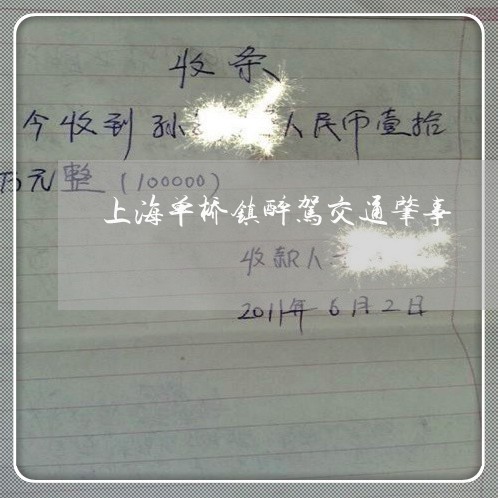 收条
今收到 孙 人民币壹拾
万元整 (100000)
上海单桥镇醉驾交通肇事
收款人
2011年6月2日